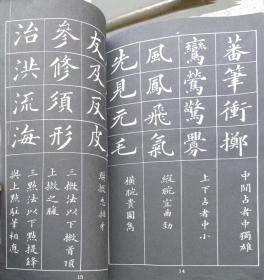 蕃筆衝擲
中間占者中獨雄
鸞鶯驚釁
上下占者中小
風鳳飛氣
縱腕宜
勁
先見元毛
橫腕貴圓雋
14
友及反皮
撇忌相
參修須形
三撇法以下撇首頂
上撇之腹
治洪流海
三點法以下點提鋒
與上點駐筆相應
15